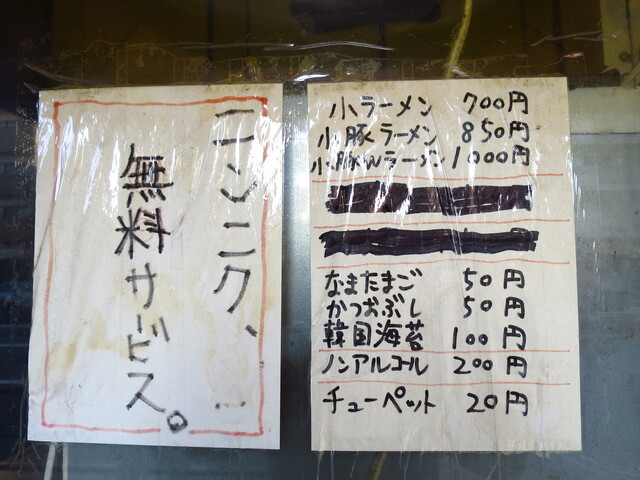 ニンニク、
無料サービス。
小ラーメン 700円
小豚ラーメン 850円
小豚Wラーメン 1000円
なまたまご 50円
かつおぶし 50円
韓国海苔 100円
ノンアルコール 200円
チューペット 20円